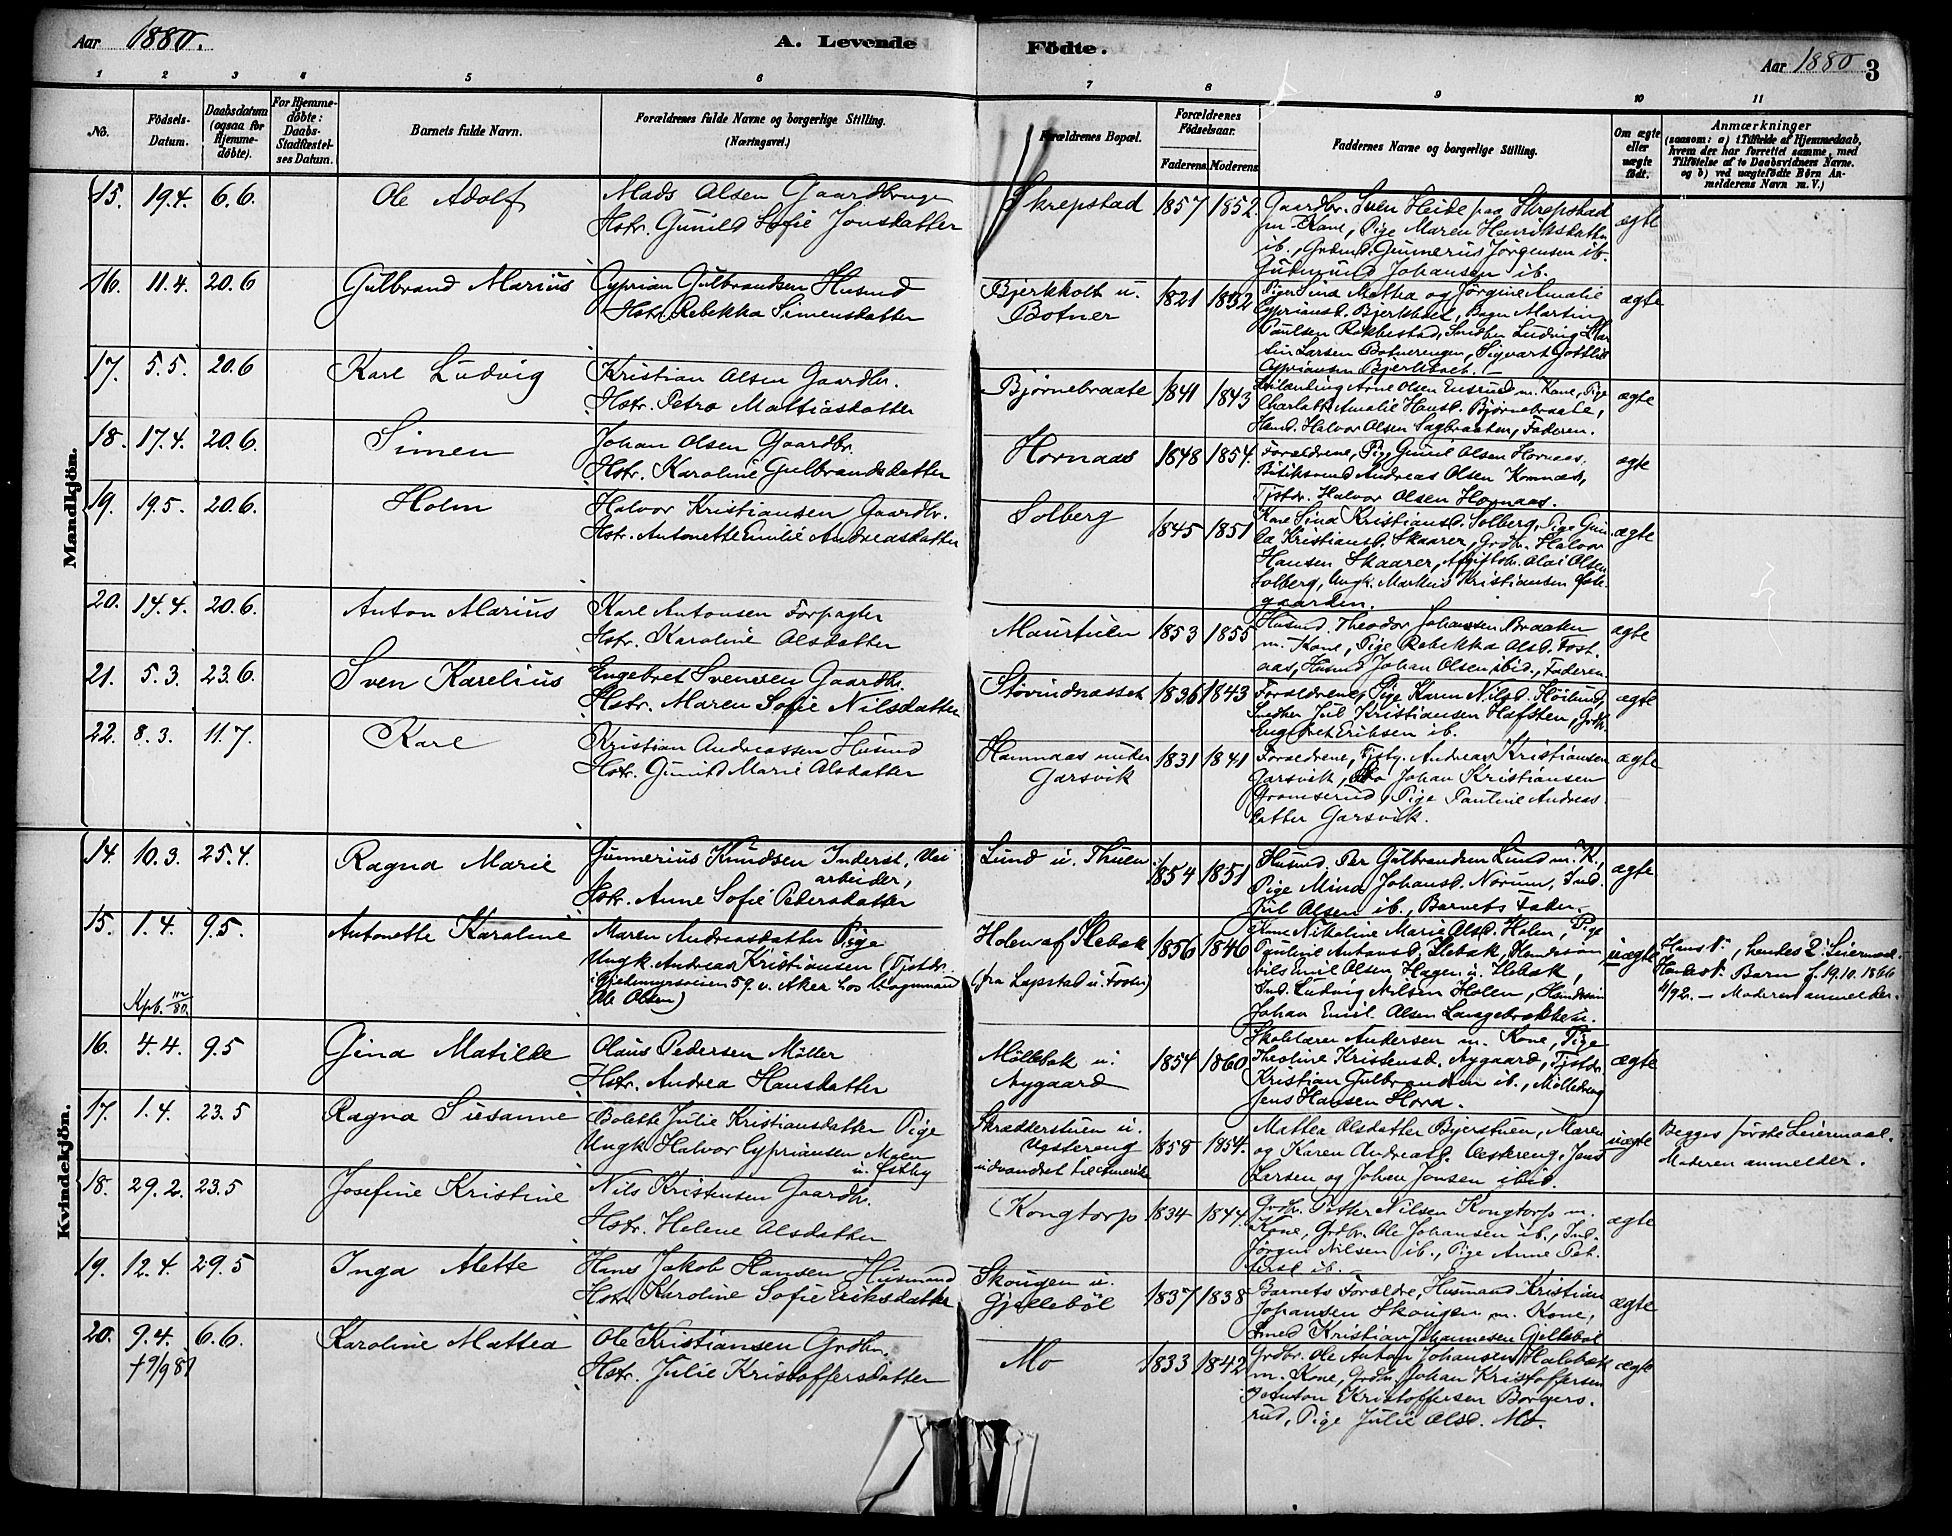 Aar 1880. A. Levende Födte. Aar 1880 3
1 2 3 4 5 6 7 8 9 10 11
No. Födsels-Datum. Daabsdatum (ogsaa for Hjemme-döbte). For Hjemme-döbte: Daabs-Stadfæstel-ses Datum. Barnets fulde Navn. Forældrenes fulde Navne og borgerlige Stilling. (Næringsvei.) Forældrenes Bopæl. Forældrenes Födselsaar. Faderens Moderens Faddernes Navne og borgerlige Stilling. Om ægte eller uægte födt. Anmærkninger
(saasom: a) i Tilfælde af Hjemmedaab,
hvem der har forrettet samme, med
Tilföielse af to Daabsvidners Navne.
og b) ved uægtefödte Börn An-
melderens Navn m. V.)
Mandkjön.
15. 19.4. 6.6. Ole Adolf Mads Olsen Gaardbruger
Hstr. Gunild Sofie Jonsdatter
Skrepstad 1857 1852. Gaardbr. Sven Heide paa Skrepstad
m. Kone, Pige Maren Henriksdatter
ib., Gunnerius Jörgensen ib.
Gudmund Johansen ib.
ægte
16. 11.4. 20.6 Gulbrand Marius Cyprian Gulbrandsen Husmd
Hstr. Rebekka Simensdatter
Bjerkholt u.
Botner
1821 1832 Piger Sina Mathea og Jörgine Amalie
Cypriansd. Bjerkholt, Martin
Paulsen Rikkestad, Ludvig
Larsen Botnerengen, Sigvart Gottlieb
Cypriansen Bjerkholt.
ægte
17. 5.5. 20.6 Karl Ludvig Kristian Olsen Gaardbr.
Hstr. Petra Mattiasdatter
Björnebraate 1841 1843 Arne Olsen m. Kone, Pige
Amalie Hansd. Björnebraate,
Halvor Olsen Sagbraaten, Faderen.
ægte
18. 17.4. 20.6. Simen Johan Olsen Gaardbr.
Hstr. Karoline Gulbrandsdatter
Hornaas 1848 1854. Forældrene, Pige Gunil Olsen Hornaas,
Andreas Olsen
Tjstdr. Halvor Olsen Hornaas.
ægte
19. 19.5. 20.6. Holm Halvor Kristiansen Gaardbr.
Hstr. Antonette Emilie Andreasdatter
Solberg 1845 1851 Kone Sina Kristiansd. Solberg, Pige
Kristiansd. Skaarer, Grdb. Halvor
Hansen Skaarer, Olai Olsen
Solberg, Ungk. Markus Kristiansen
gaarden.
ægte
20. 14.4. 20.6. Anton Marius Karl Antonsen Forpagter
Hstr. Karoline Olsdatter
Maurtuen 1853 1855 Husmd. Theodor Johansen Braaten
m. Kone, Pige Rebekka Olsd. Fost-
aas, Husmd Johan Olsen ibid., Faderen.
ægte
21. 5.3. 23.6. Sven Karelius Engebret Svensen Gaardbr.
Hstr. Maren Sofie Nilsdatter
Stövindnæsset 1836 1843 Forældrene, Pige Karen Nilsd. Höilund,
Snedker Jul Kristiansen Hafsten, Grdb.
Engebret Eriksen ib.
ægte
22. 8.3. 11.7. Karl Kristian Andreassen Husmd
Hstr. Gunild Marie Olsdatter
Hamnaas under
Garsvik
1831 1841 Forældrene, Andreas Kristiansen
Garsvik, Johan Kristiansen
Pige Pauline Andreas-
datter Garsvik.
ægte
Kvindekjön.
14. 10.3. 25.4. Ragna Marie Gunnerius Knudsen Inderst, Vei
arbeider,
Hstr. Anne Sofie Pedersdatter
Lund u. Thuen 1854 1851 Husmd. Per Gulbrandsen Lund m. K.,
Pige Mina Johansd. Norum, Ind.
Jul Olsen ib., Barnets Fader.
ægte
15. 1.4. 9.5. Antonette Karoline Maren Andreasdatter Pige
Ungk. Andreas Kristiansen (Tjstdr.
59. v. Aker hos
Ole Olsen)
Kpb. 11/2 80.
Holen af Slebak
(fra Lapstad u. Foster)
1856 1846 Kone Nikoline Marie Olsd. Holen, Pige
Pauline Antonsd. Slebak,
Emil Olsen Hagen u. Slebak,
Ind. Ludvig Nilsen Holen,
Johan Emil Olsen
uægte
Hans 1., hendes 2. Leiermaal.
Barn f. 19.10.1866
4/92. – Moderen anmelder.
16. 4.4. 9.5 Gina Matilde Olaus Pedersen Möller
Hstr. Andrea Hansdatter
Möllebak u.
Nygaard
1854 1860 Skolelærer Andersen m. Kone, Pige
Theoline Kristensd. Nygaard, Tjstdr.
Kristian Gulbrandsen ib., Mölledreng
Jens Hansen Hora.
ægte
17. 1.4. 23.5 Ragna Susanne Bolette Julie Kristiansdatter Pige
Ungk. Halvor Cypriansen Moen
u. Östby
Skrædderstuen u.
Vestereng
udvandret til Amerika
1858 1854. Mattea Olsdatter Bjerstuen, Maren
og Karen Andreasd. Vestereng, Jens
Larsen og Johan Jonsen ibid.
uægte
Begges förste Leiermaal.
Moderen anmelder.
18. 29.2. 23.5 Josefine Kristine Nils Kristensen Gaardbr.
Hstr. Helene Olsdatter
Kongtorp 1834 1844. Grdbr. Petter Nilsen Kongtorp m.
Kone, Grdbr. Ole Johansen ib., Ind.
Jörgen Nilsen ib., Pige Anne Pet-
tersd. ib.
ægte
19. 12.4. 29.5 Inga Mette Hans Jakob Hansen Husmand
Hstr. Karoline Sofie Eriksdatter
Skougen u.
Gjelleböl
1837 1838 Barnets Forældre, Husmand Kristian
Johansen Skougen m. Kone,
Smed Kristian Johannesen Gjelleböl
ægte
20. 9.4. 6.6. Karoline Mattea Ole Kristiansen Grdbr.
† 9/9 81 Hstr. Julie Kristoffersdatter
Mo 1833 1842 Grdbr. Ole Anton Johansen
m. Kone, Grdbr. Johan Kristoffersen
Anton Kristoffersen Borgers-
rud, Pige Julie Olsd. Mo.
ægte